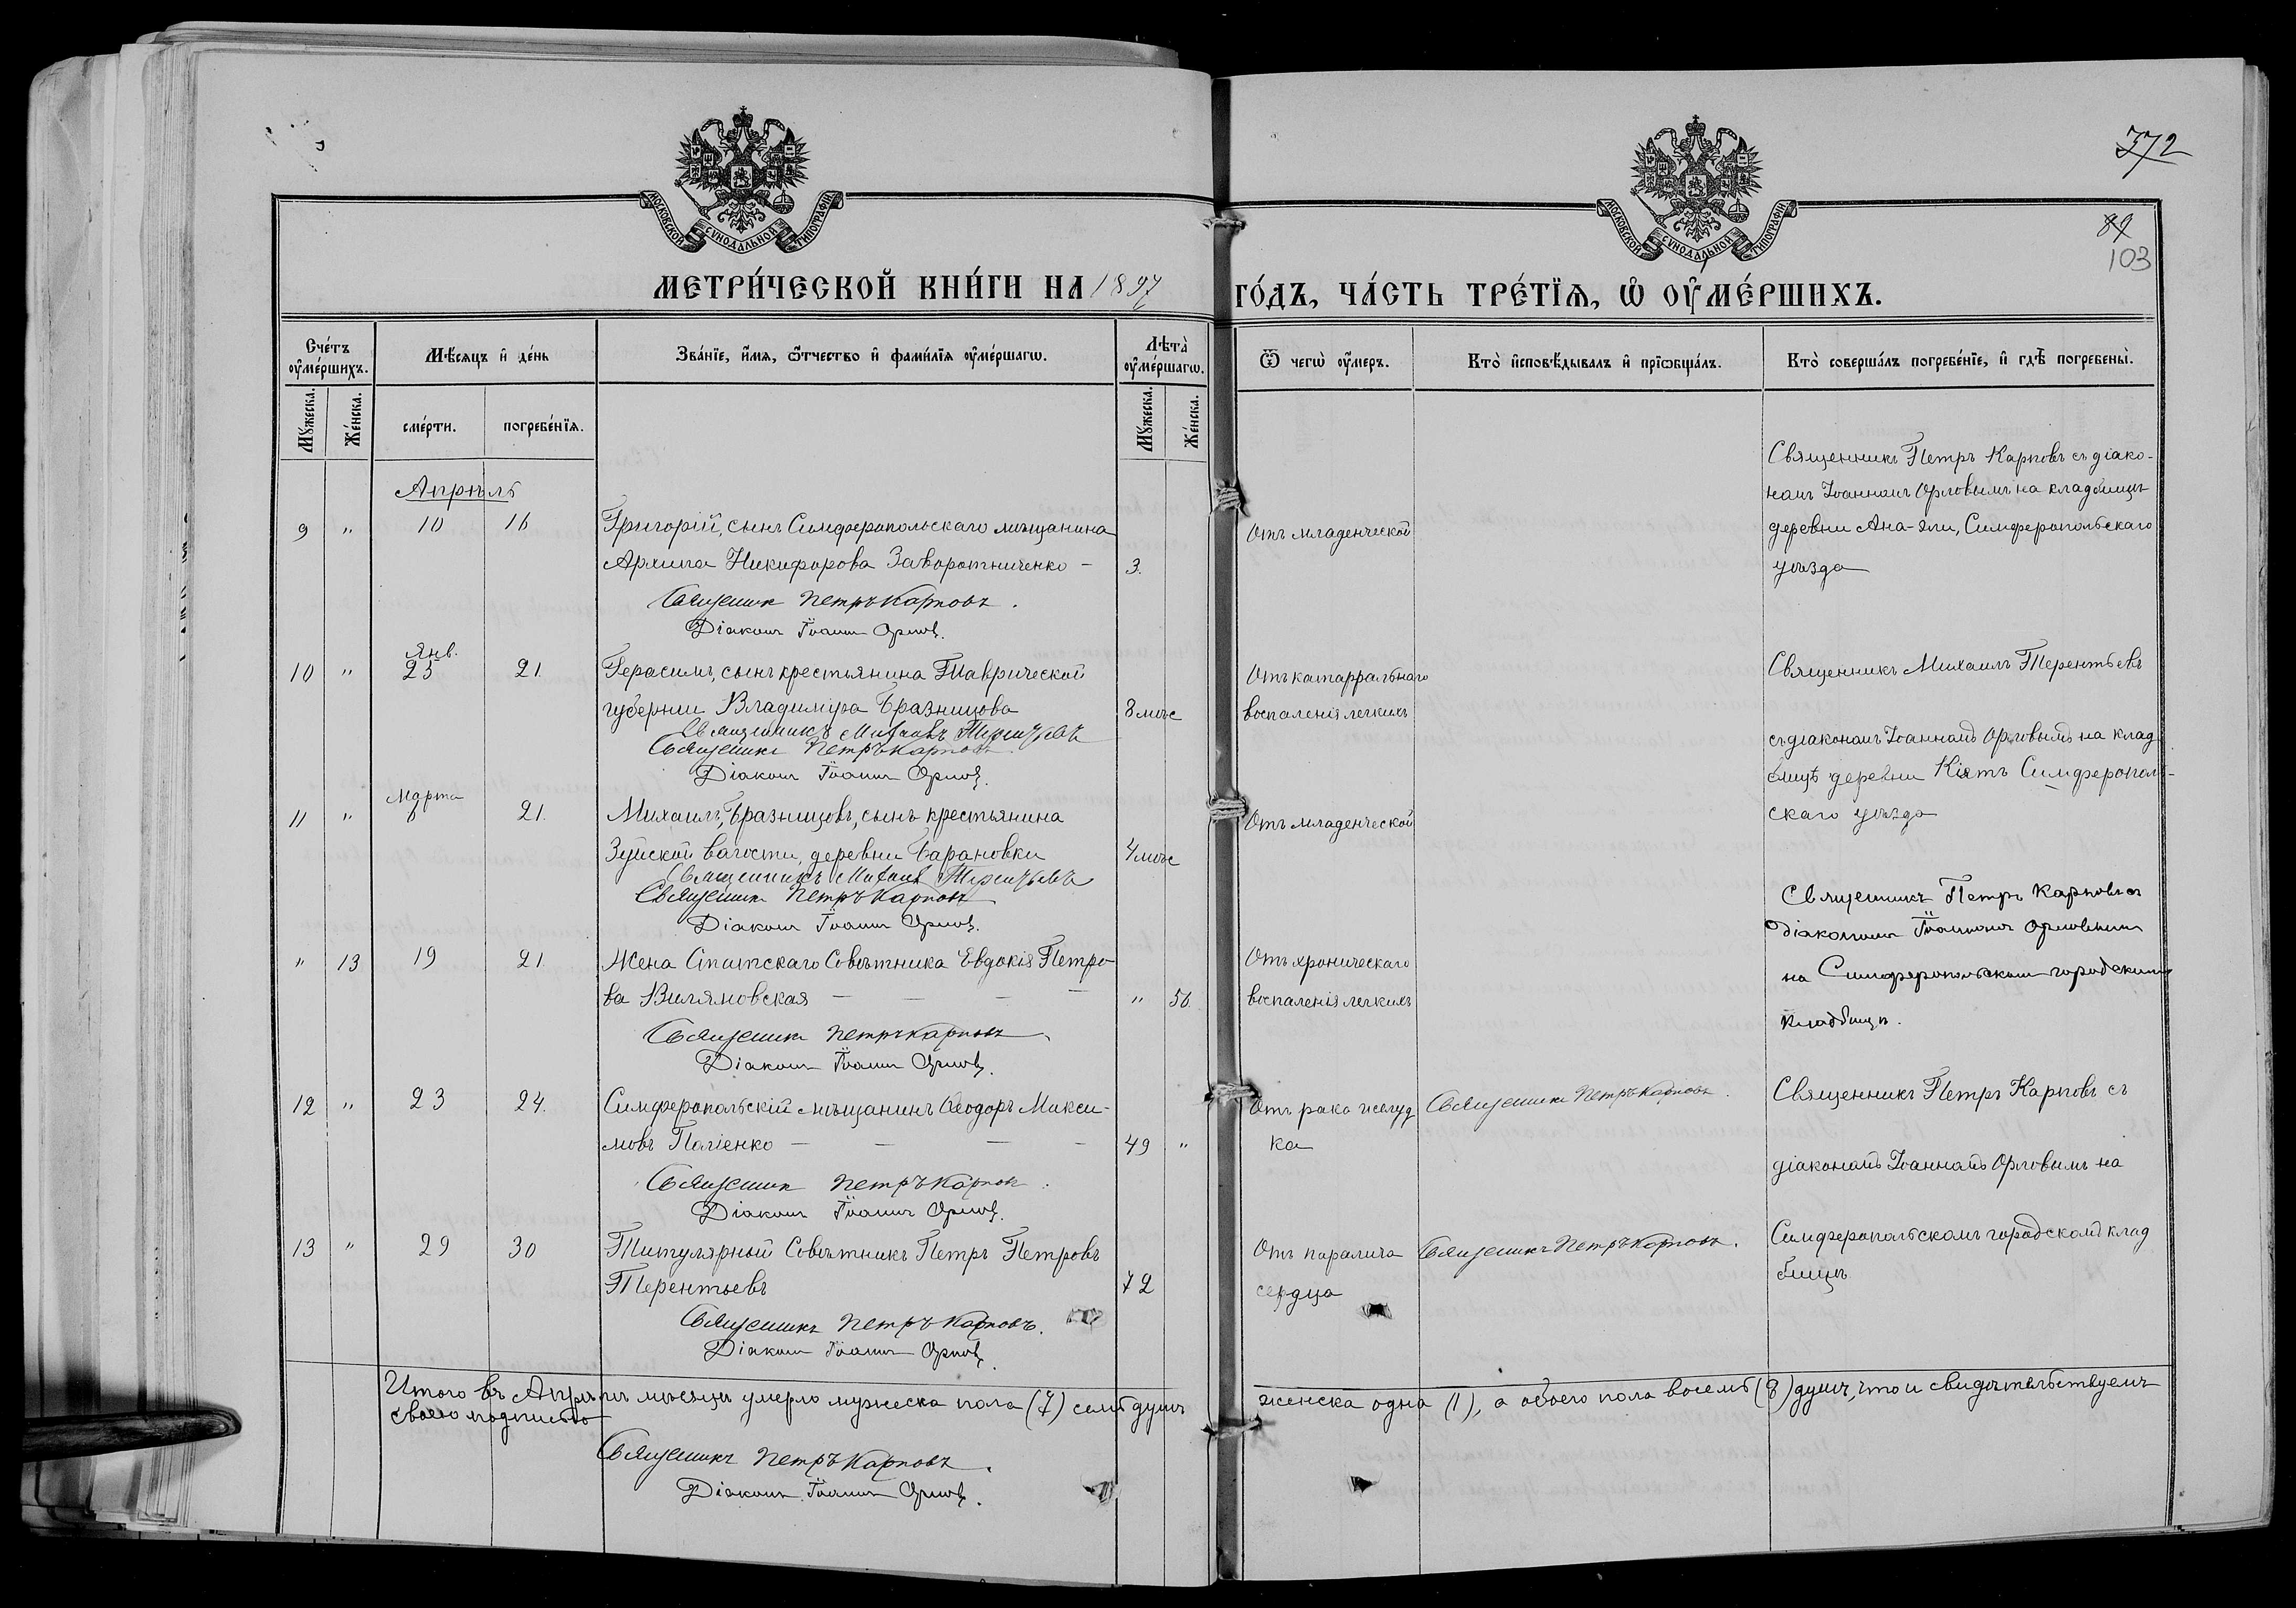 МОСКОВСКОЙ СѴНОДАЛЬНОЙ ТИПОГРАФІИ
МЕТРИ́ЧЕСКОЙ КНИ́ГИ НА 1897
Сче́тъ ᲂу҆ме́ршихъ.
Мѣ́сяцъ и҆ де́нь
Зва́нїе, и҆́мя, ѻ҆́тчество и҆ фами́лїя ᲂу҆ме́ршагѡ.
Лѣ́та ᲂу҆ме́ршагѡ.
Мꙋ́жеска. Же́нска. сме́рти. погребе́нїя. Мꙋ́жеска. Же́нска.
Апрѣль
9 " 10 16 Григорій, сынъ Симферопольскаго мѣщанина
Архипа Никифорова Заворотниченко – 3.
Священникъ Петръ Карповъ.
Діаконъ Іоаннъ Орловъ.
Янв.
10 " 25 21 Герасимъ, сынъ крестьянина Таврической
губерніи Владиміра Бразницова 8 мѣс
Священникъ Михаилъ Терентьевъ
Священникъ Петръ Карповъ
Діаконъ Іоаннъ Орловъ.
Марта
11 " 6 21 Михаилъ, Бразницовъ, сынъ крестьянина
Зуйской волости, деревни Барановки 4 мѣс
Священникъ Михаилъ Терентьевъ
Священникъ Петръ Карповъ
Діаконъ Іоаннъ Орловъ.
" 13 19 21 Жена Статскаго Совѣтника Евдокія Петро
ва Виляновская – – – – " 56
Священникъ Петръ Карповъ
Діаконъ Іоаннъ Орловъ.
12 " 23 24 Симферопольскій мѣщанинъ Ѳеодоръ Макси-
мовъ Палієнко – – – – 49 "
Священникъ Петръ Карповъ.
Діаконъ Іоаннъ Орловъ.
13 " 29 30 Титулярный Совѣтникъ Петръ Петровъ
Терентьевъ 72
Священникъ Петръ Карповъ.
Діаконъ Іоаннъ Орловъ.
Итого въ Апрѣлѣ мѣсяцѣ умерло мужеска пола (7) семь душъ
своею подписью
Священникъ Петръ Карповъ.
Діаконъ Іоаннъ Орловъ.
372
МОСКОВСКОЙ СѴНОДАЛЬНОЙ ТИПОГРАФІИ
89
103
ГО́ДЪ, ЧА́СТЬ ТРЕ́ТЇЯ, Ѡ҆ ОУ҆МЕ́РШИХЪ.
Ѿ чегѡ̀ ᲂу҆́меръ.
Кто̀ и҆сповѣ́дывалъ и҆ прїѡбща́лъ.
Кто̀ соверша́лъ погребе́нїе, и҆ гдѣ̀ погребены̀.
Священникъ Петръ Карповъ съ діако-
номъ Іоанномъ Орловымъ на кладбищѣ
Отъ младенческой деревни Ана-Эли, Симферопольскаго
уѣзда
Отъ катарральнаго Священникъ Михаилъ Терентьевъ
воспаленія легкихъ
съ діакономъ Іоанномъ Орловымъ на клад
бищѣ деревни Кіятъ Симферополь-
Отъ младенческой скаго уѣзда
Священникъ Петръ Карповъ съ
діакономъ Іоанномъ Орловымъ
Отъ хроническаго на Симферопольскомъ городскомъ
воспаленія легкихъ кладбищѣ.
Отъ рака желуд Священникъ Петръ Карповъ. Священникъ Петръ Карповъ съ
ка діакономъ Іоанномъ Орловымъ на
Отъ паралича Священникъ Петръ Карповъ. Симферопольскомъ городскомъ клад
сердца бищѣ
женска одна (1), а обоего пола восемь (8) душъ, что и свидѣтельствуемъ